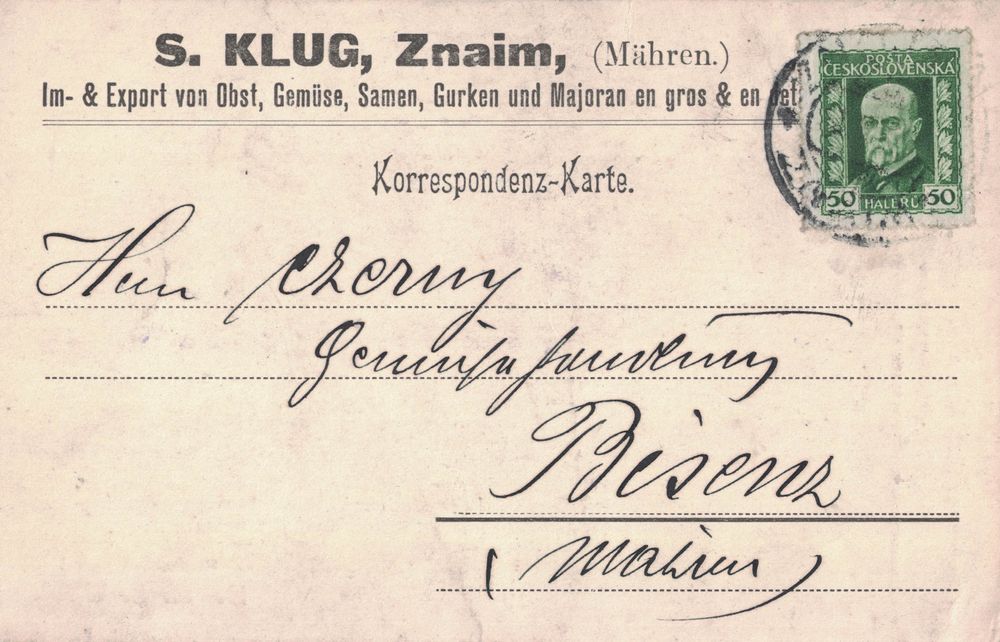 S. KLUG, Znaim, (Mähren.)
Im- & Export von Obst, Gemüse, Samen, Gurken und Majoran en gros & en det
POŠTA
ČESKOSLOVENSKÁ
50 HALÉŘŮ 50
Korrespondenz-Karte.
Herrn Czerny
Gemüsehandlung
Bisenz
(Mähren)